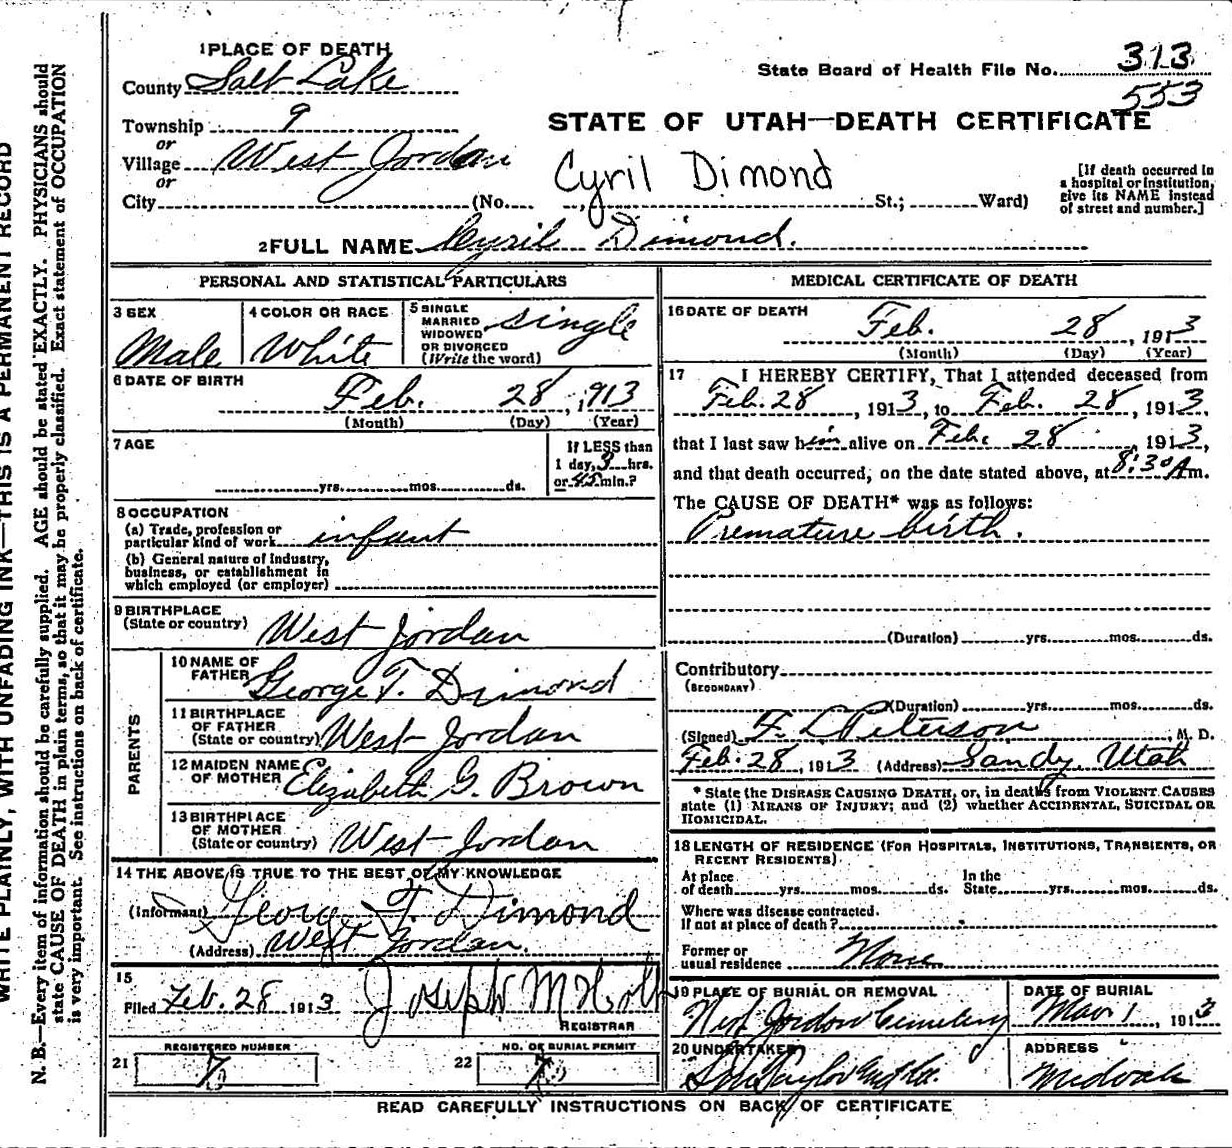 1 PLACE OF DEATH
County Salt Lake
State Board of Health File No. 313
553
Township 9
or
Village West Jordan
or
City (No. St.; Ward)
STATE OF UTAH—DEATH CERTIFICATE
Cyril Dimond
[If death occurred in
a hospital or institution,
give its NAME instead
of street and number.]
2 FULL NAME Cyril Dimond.
PERSONAL AND STATISTICAL PARTICULARS
3 SEX
Male
4 COLOR OR RACE
White
5 SINGLE
MARRIED
WIDOWED
OR DIVORCED
(Write the word)
single
6 DATE OF BIRTH
Feb. 28, 1913
(Month) (Day) (Year)
7 AGE
yrs. mos. ds.
If LESS than
1 day, 3 hrs.
or 45 min.?
8 OCCUPATION
(a) Trade, profession or
particular kind of work infant
(b) General nature of industry,
business, or establishment in
which employed (or employer)
9 BIRTHPLACE
(State or country) West Jordan
PARENTS
10 NAME OF
FATHER George T. Dimond
11 BIRTHPLACE
OF FATHER
(State or country) West Jordan
12 MAIDEN NAME
OF MOTHER Elizabeth G. Brown
13 BIRTHPLACE
OF MOTHER
(State or country) West Jordan
14 THE ABOVE IS TRUE TO THE BEST OF MY KNOWLEDGE
(Informant) Georg T. Dimond
(Address) West Jordan.
15
Filed Feb. 28 1913 Joseph M Holt
REGISTRAR
21 REGISTERED NUMBER
7
22 NO. OF BURIAL PERMIT
7
MEDICAL CERTIFICATE OF DEATH
16 DATE OF DEATH
Feb. 28, 1913
(Month) (Day) (Year)
17 I HEREBY CERTIFY, That I attended deceased from
Feb. 28, 1913, to Feb. 28, 1913,
that I last saw him alive on Feb. 28, 1913,
and that death occurred, on the date stated above, at 8:30 A m.
The CAUSE OF DEATH* was as follows:
Premature birth.
(Duration) yrs. mos. ds.
Contributory
(SECONDARY)
(Duration) yrs. mos. ds.
(Signed) F. L Peterson, M. D.
Feb. 28, 1913 (Address) Sandy, Utah
* State the DISEASE CAUSING DEATH, or, in deaths from VIOLENT CAUSES
state (1) MEANS OF INJURY; and (2) whether ACCIDENTAL, SUICIDAL OR
HOMICIDAL.
18 LENGTH OF RESIDENCE (FOR HOSPITALS, INSTITUTIONS, TRANSIENTS, OR
RECENT RESIDENTS)
At place
of death yrs. mos. ds.
In the
State yrs. mos. ds.
Where was disease contracted.
If not at place of death?
Former or
usual residence None
19 PLACE OF BURIAL OR REMOVAL
West Jordon Cemetery
DATE OF BURIAL
Mar 1, 1913
20 UNDERTAKER
ADDRESS
Midvale
READ CAREFULLY INSTRUCTIONS ON BACK OF CERTIFICATE
WRITE PLAINLY, WITH UNFADING INK—THIS IS A PERMANENT RECORD
N. B.—Every item of information should be carefully supplied. AGE should be stated EXACTLY. PHYSICIANS should
state CAUSE OF DEATH in plain terms, so that it may be properly classified. Exact statement of OCCUPATION
is very important. See instructions on back of certificate.